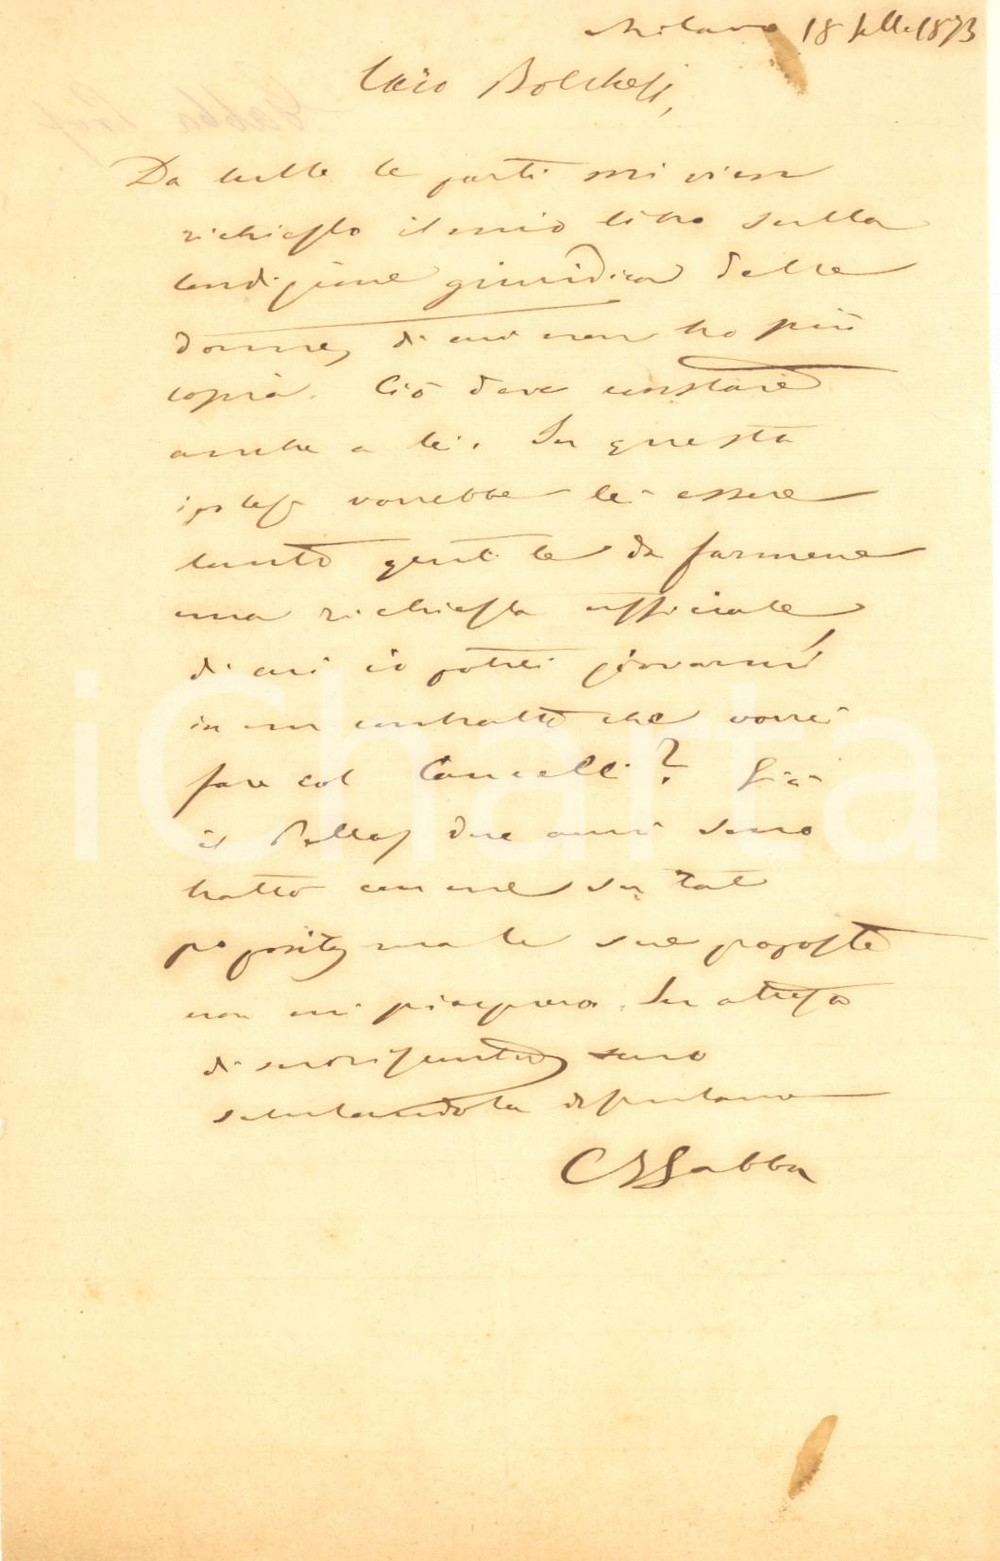 Milano 18 7bre 1873
Caro Bolchesi,
Da tutte le parti mi viene
richiesto il mio libro sulla
condizione giuridica delle
donne, di cui non ho più
copia. Ciò deve constare
anche a lei. In questa
ipotesi vorrebbe lei essere
tanto gentile da farmene
una richiesta ufficiale
di cui io potrei giovarmi
in un contratto che vorrei
fare col Cancelli? Già
il Pellas due anni sono
trattò con me su tal
proposito, ma le sue proposte
non mi piacquero. In attesa
di suo riscontro, sono
salutandola distintamente
CF Gabba
iCharta